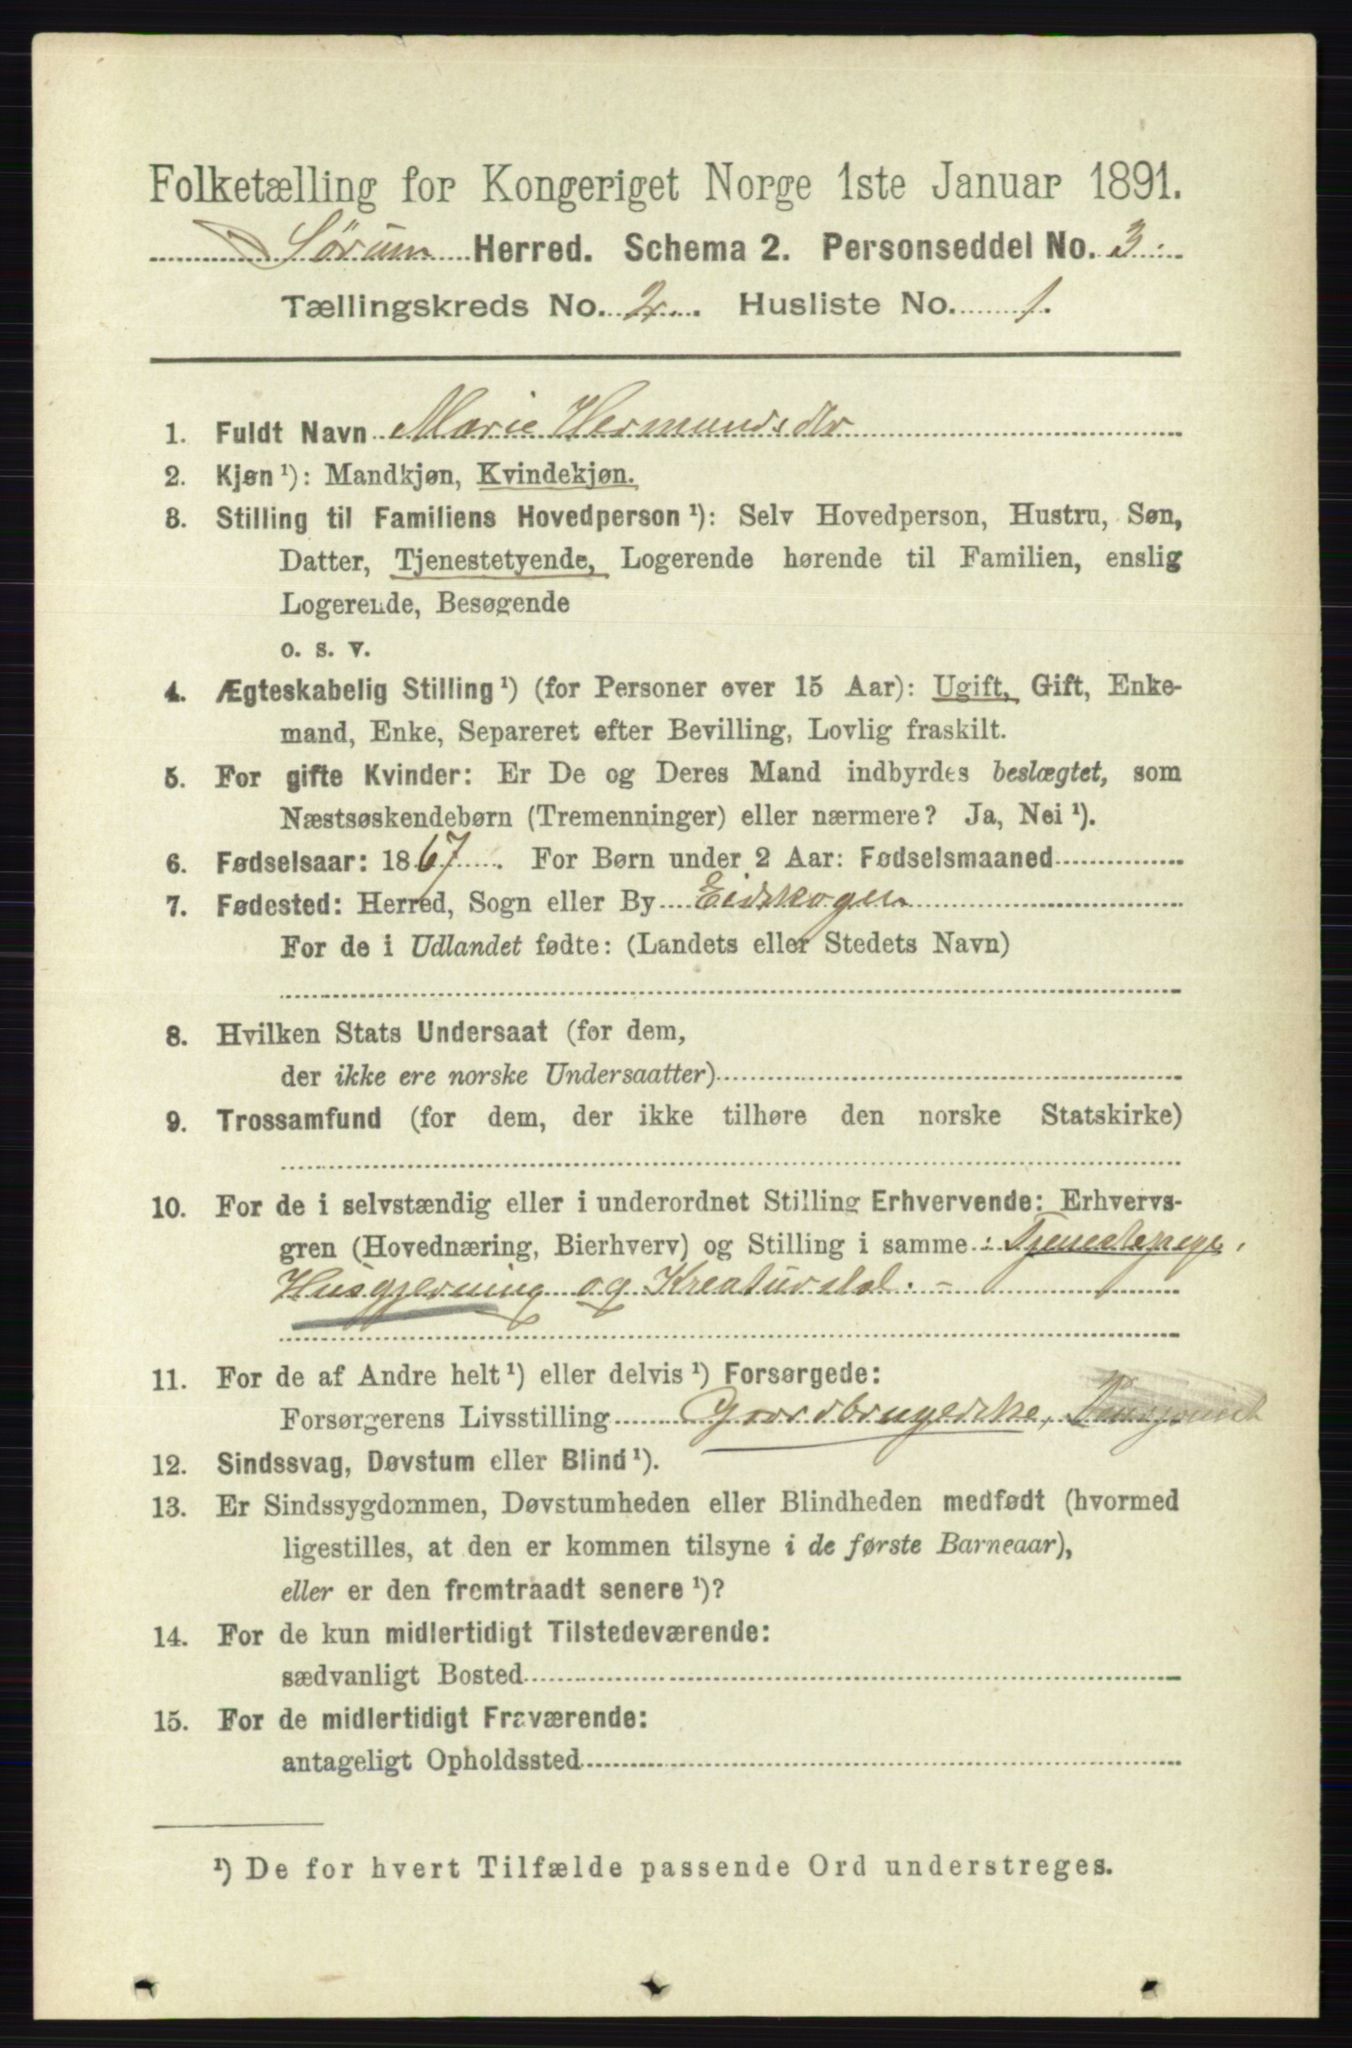 Folketælling for Kongeriget Norge 1ste Januar 1891.
Sørum Herred. Schema 2. Personseddel No. 3.
Tællingskreds No. 2. Husliste No. 1.
1. Fuldt Navn Marie Hermundsdtr
2. Kjøn ¹): Mandkjøn, Kvindekjøn.
3. Stilling til Familiens Hovedperson ¹): Selv Hovedperson, Hustru, Søn,
Datter, Tjenestetyende, Logerende hørende til Familien, enslig
Logerende, Besøgende
o. s. v.
4. Ægteskabelig Stilling ¹) (for Personer over 15 Aar): Ugift, Gift, Enke-
mand, Enke, Separeret efter Bevilling, Lovlig fraskilt.
5. For gifte Kvinder: Er De og Deres Mand indbyrdes beslægtet, som
Næstsøskendebørn (Tremenninger) eller nærmere? Ja, Nei ¹).
6. Fødselsaar: 1867. For Børn under 2 Aar: Fødselsmaaned
7. Fødested: Herred, Sogn eller By Eidskogen
For de i Udlandet fødte: (Landets eller Stedets Navn)
8. Hvilken Stats Undersaat (for dem,
der ikke ere norske Undersaatter)
9. Trossamfund (for dem, der ikke tilhøre den norske Statskirke)
10. For de i selvstændig eller i underordnet Stilling Erhvervende: Erhvervs-
gren (Hovednæring, Bierhverv) og Stilling i samme: Tjenestepige,
Husgjerning og Kreaturstel. -
11. For de af Andre helt ¹) eller delvis ¹) Forsørgede:
Forsørgerens Livsstilling Gaardbrugerske,
12. Sindssvag, Døvstum eller Blind ¹).
13. Er Sindssygdommen, Døvstumheden eller Blindheden medfødt (hvormed
ligestilles, at den er kommen tilsyne i de første Barneaar),
eller er den fremtraadt senere ¹)?
14. For de kun midlertidigt Tilstedeværende:
sædvanligt Bosted
15. For de midlertidigt Fraværende:
antageligt Opholdssted
¹) De for hvert Tilfælde passende Ord understreges.